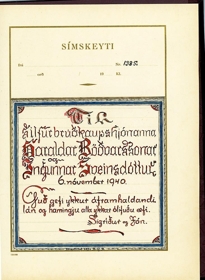 SÍMSKEYTI
Til
silfurbrúðkaupshjónanna
Haraldar Böðvarssonar
og
Ingunnar Sveinsdóttur
6. nóvember 1940.
Guð gefi ykkur áframhaldandi
lán og hamingju alla ykkar ólifuðu æfi.
Sigríður og Jón.